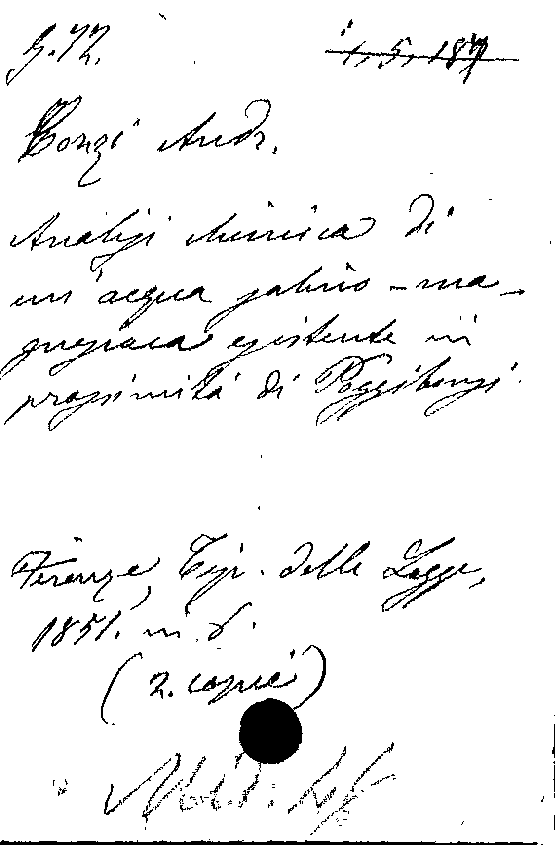 G.72. 1, 5, 187
Conzi Andr.
Analisi chimica di
un'acqua salino - ma-
gnesiaca esistente in
prossimità di Poggibonsi.
Firenze, Tip. delle Logge,
1851. in 8.
(2. copie)